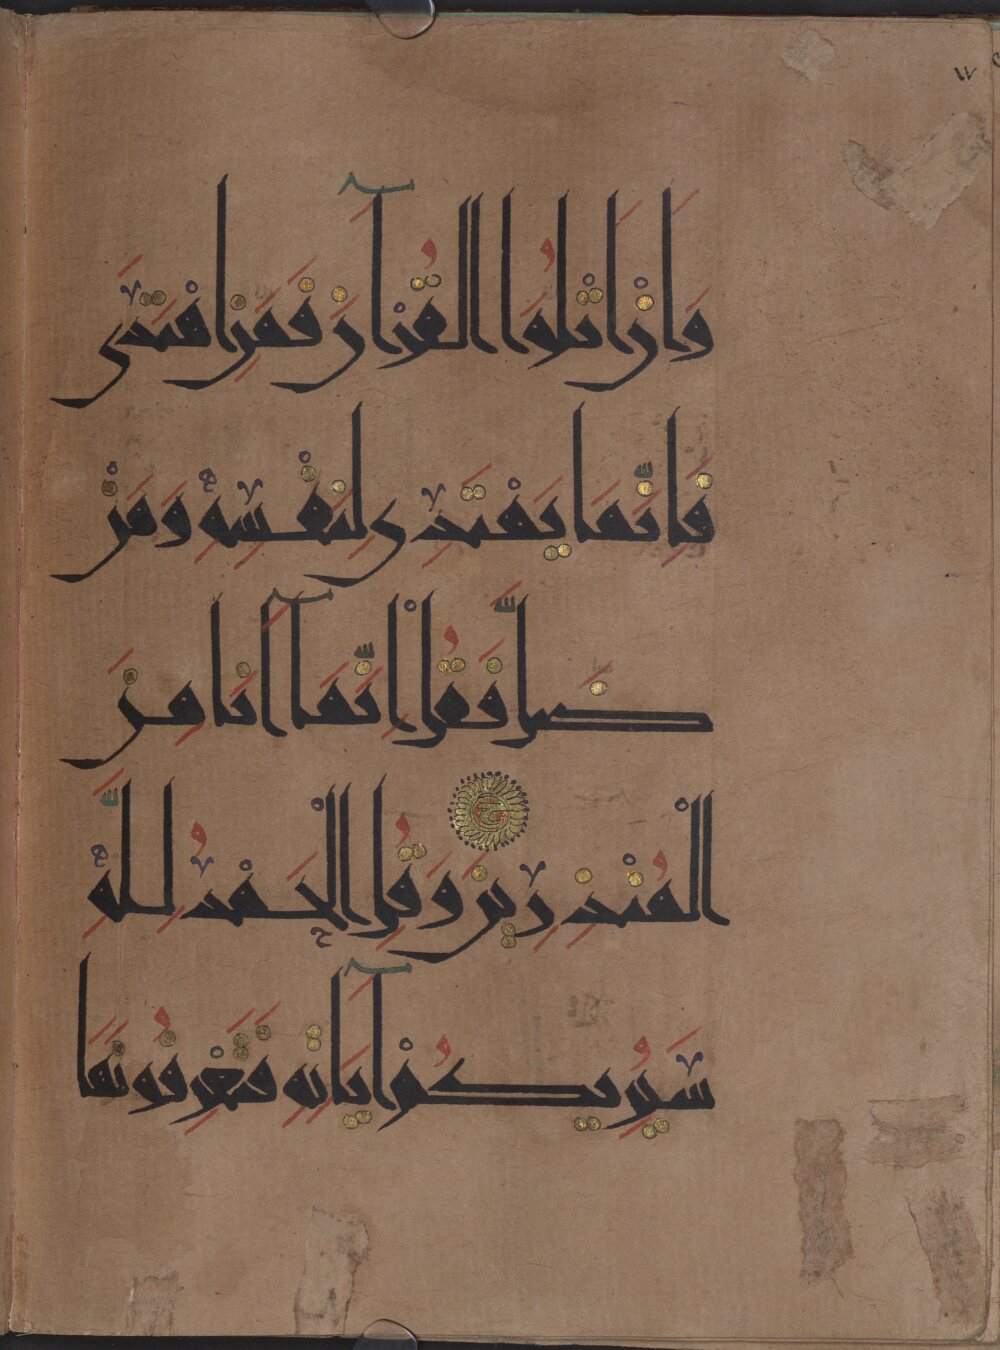 وَأَنْ أَتْلُوَا الْقُرْآنَ فَمَنِ اهْتَدَىٰ
فَإِنَّمَا يَهْتَدِي لِنَفْسِهِ وَمَنْ
ضَلَّ فَقُلْ إِنَّمَا أَنَا مِنَ
الْمُنْذِرِينَ وَقُلِ الْحَمْدُ لِلَّهِ
سَيُرِيكُمْ آيَاتِهِ فَتَعْرِفُونَهَا